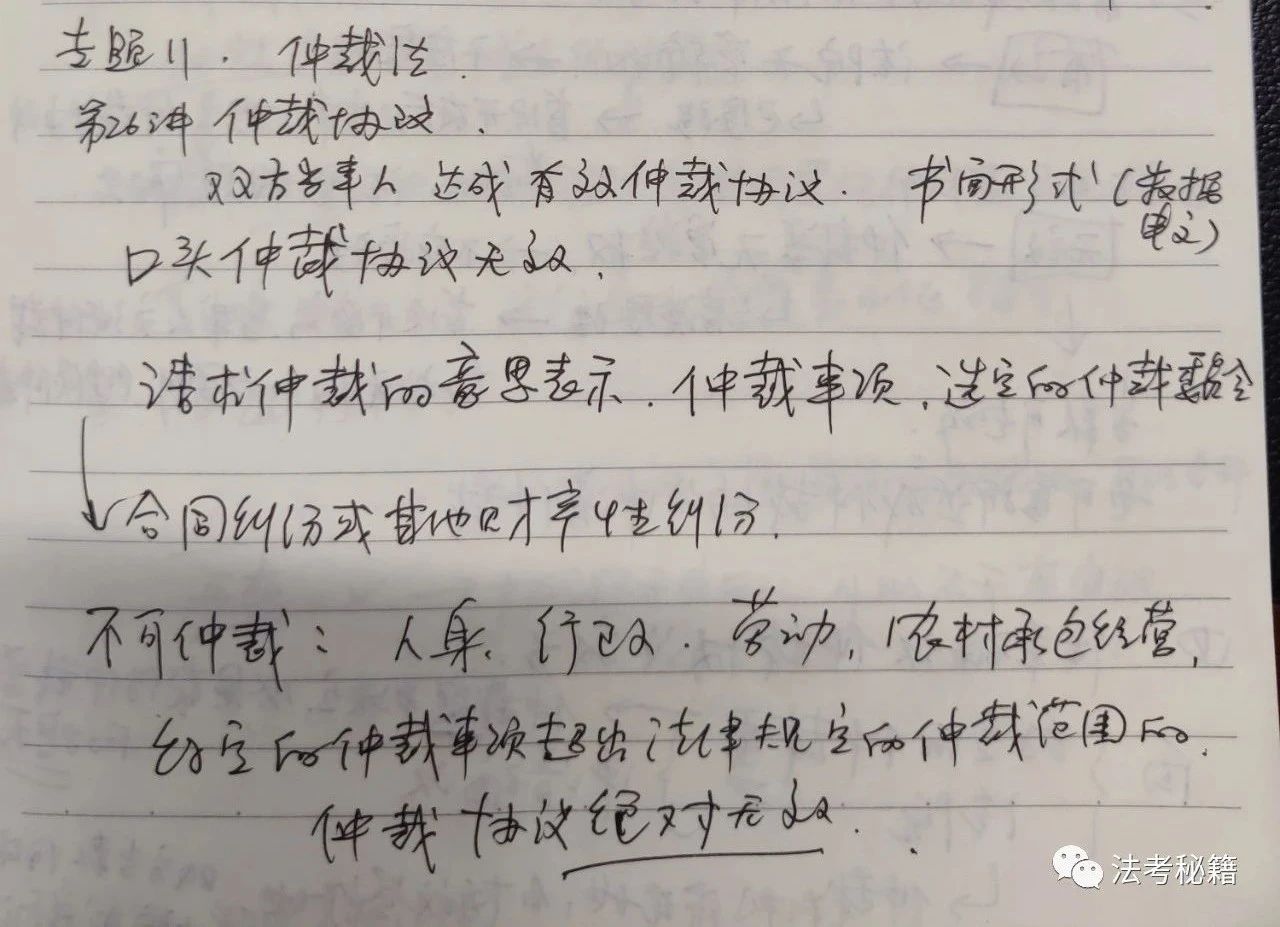 专题11. 仲裁法.
第26讲 仲裁协议.
双方当事人 达成 有效仲裁协议. 书面形式 (数据
电文)
口头仲裁协议无效.
请求仲裁的意思表示. 仲裁事项, 选定的仲裁委员会
↓合同纠纷或其他财产性纠纷.
不可仲裁: 人身、行政. 劳动, 农村承包经营,
约定的仲裁事项超出法律规定的仲裁范围的.
仲裁协议绝对无效.
法考秘籍